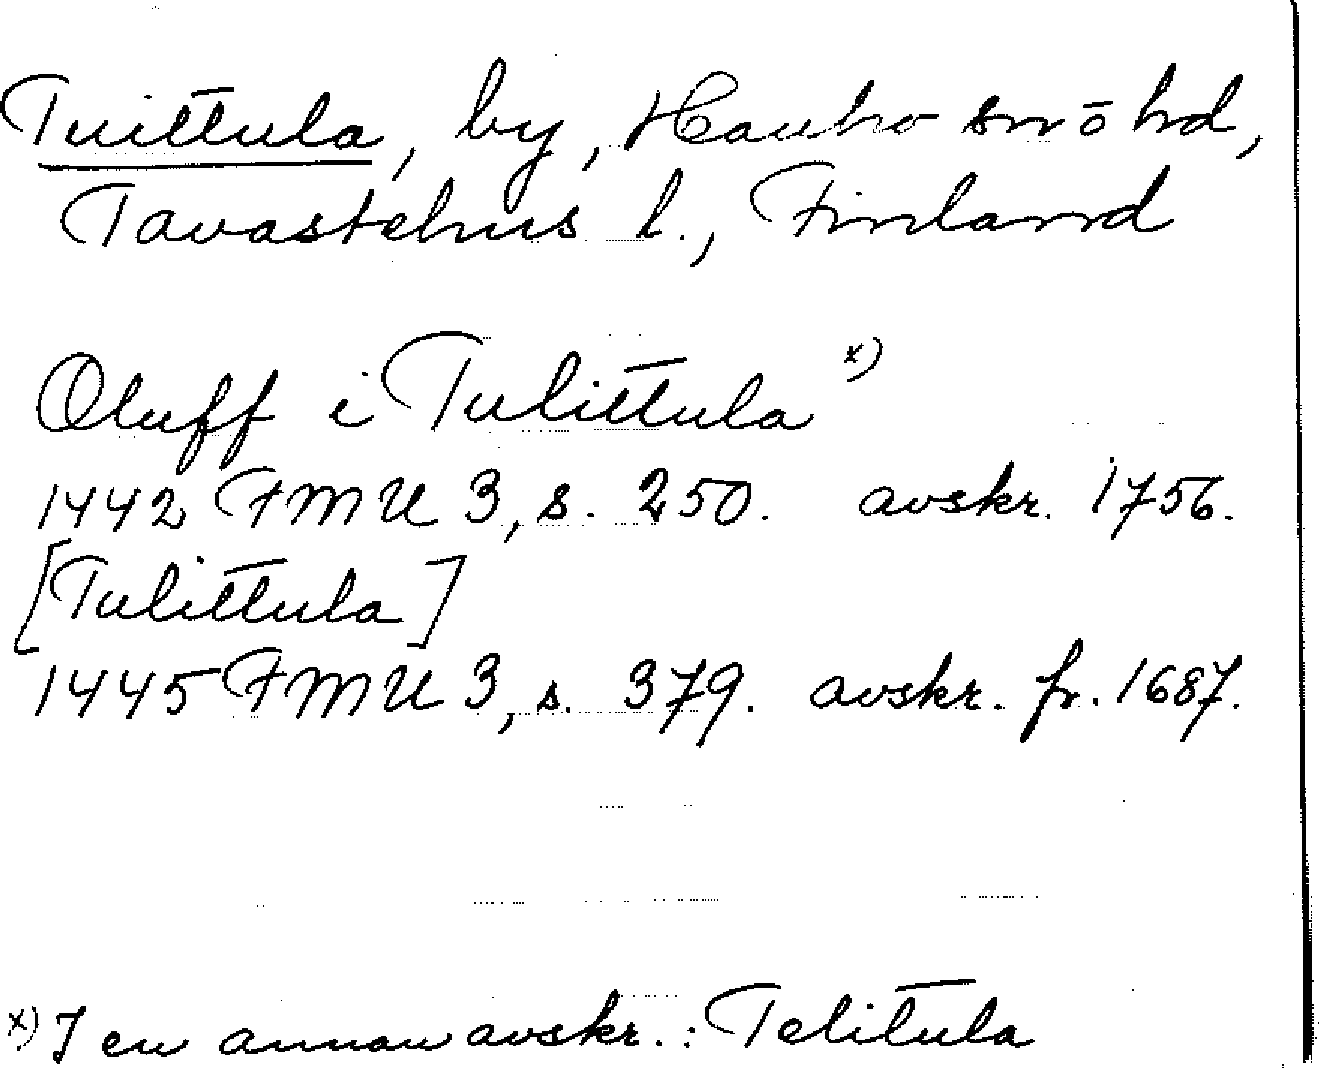 Tuittula, by, Hauho sn o hd,
Tavastehus l., Finland
Oluff i Tulittula x)
1442 FMU 3, s. 250. avskr. 1756.
[Tulittula]
1445 FMU 3, s. 379. avskr. fr. 1687.
x) I en annan avskr.: Telitula